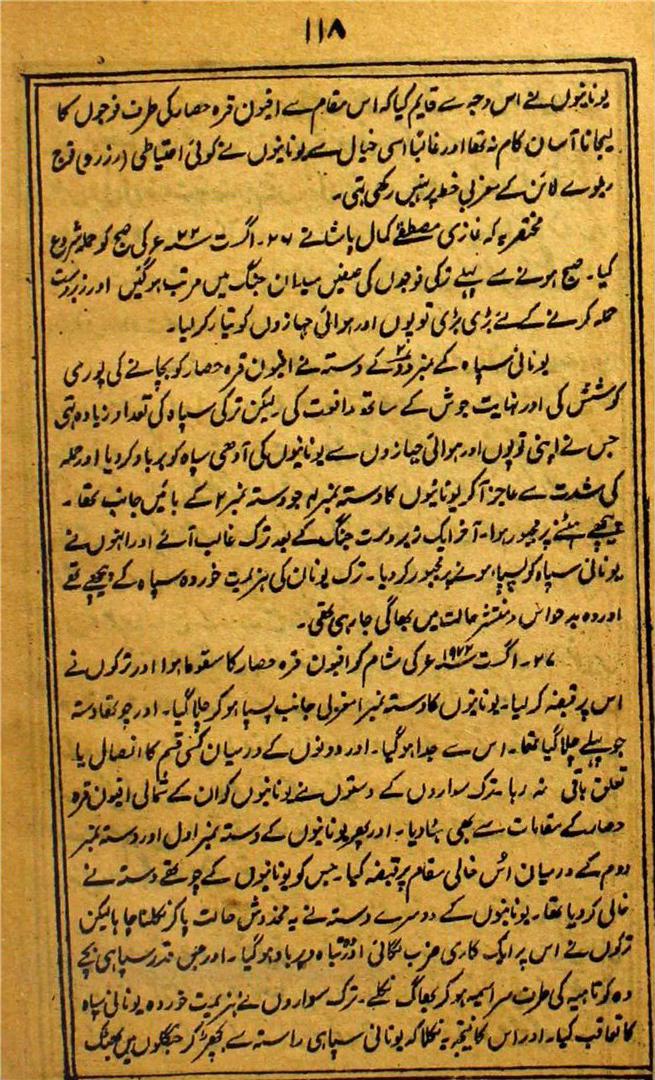 ۱۱۸
یونانیوں نے اس وجہ سے قایم کیا کہ اس مقام سے افیون قرہ حصار کی طرف فوجوں کا
لیجانا آسان کام نہ تھا اور غالباً اسی خیال سے یونانیوں نے کوئی احتیاطی (رزرو) فوج
ریلوے لائن کے مغربی خط پر نہیں رکھی تھی۔
مختصر یہ کہ غازی مصطفےٰ کمال پاشا نے ۲۶۔ اگست سنہ ۲۲ء کی صبح کو حملہ شروع
کیا۔ صبح ہونے سے پہلے ترکی فوجوں کی صفیں میدان جنگ میں مرتب ہوگئیں اور زبردست
حملہ کرنے کے لئے بڑی بڑی توپوں اور ہوائی جہازوں کو تیار کر لیا۔
یونانی سپاہ کے نمبر دو ۲ کے دستہ نے افیون قرہ حصار کو بچانے کی پوری
کوشش کی اور نہایت جوش کے ساتھ مدافعت کی لیکن ترکی سپاہ کی تعداد زیادہ تھی
جس نے اپنی توپوں اور ہوائی جہازوں سے یونانیوں کی آدھی سپاہ کو برباد کر دیا اور حملہ
کی شدت سے عاجز آکر یونانیوں کا دستہ نمبر ۴ جو دستہ نمبر ۲ کے بائیں جانب تھا۔
پیچھے ہٹنے پر مجبور ہوا۔ آخر ایک زبردست جنگ کے بعد ترک غالب آئے اور انہوں نے
یونانی سپاہ کو پسپا ہونے پر مجبور کر دیا۔ ترک یونان کی ہزیمت خوردہ سپاہ کے پیچھے تھے
اور وہ بدحواس و منتشر حالت میں بھاگی جا رہی تھی۔
۲۷۔ اگست سنہ ۱۹۲۲ء کی شام کو افیون قرہ حصار کا سقوط ہوا اور ترکوں نے
اس پر قبضہ کر لیا۔ یونانیوں کا دستہ نمبر ۱ مغربی جانب پسپا ہو کر چلا گیا۔ اور چوتھا دستہ
جو پہلے چلا گیا تھا۔ اس سے جدا ہو گیا۔ اور دونوں کے درمیان کسی قسم کا اتصال یا
تعلق باقی نہ رہا۔ ترک سواروں کے دستوں نے یونانیوں کو ان کے شمالی افیون قرہ
حصار کے مقامات سے بھی ہٹا دیا۔ اور پھر یونانیوں کے دستہ نمبر اول اور دستہ نمبر
دوم کے درمیان اُس خالی مقام پر قبضہ کیا۔ جس کو یونانیوں کے چوتھے دستہ نے
خالی کر دیا تھا۔ یونانیوں کے دوسرے دستہ نے یہ مخدوش حالت پاکر نکلنا چاہا لیکن
ترکوں نے اس پر ایک کاری ضرب لگائی اور وہ تباہ و برباد ہو گیا۔ اور جس قدر سپاہی بچے
وہ کوتاہیہ کی طرف سراسیمہ ہو کر بھاگ نکلے۔ ترک سواروں نے ہزیمت خوردہ یونانی سپاہ
کا تعاقب کیا۔ اور اس کا نتیجہ یہ نکلا کہ یونانی سپاہی راستہ سے بچھڑ کر جنگلوں میں بھٹک